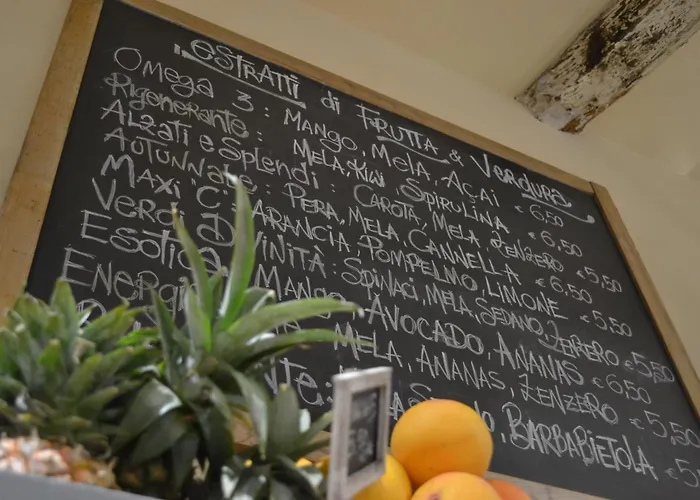 Estratti di Frutta & Verdura
Omega 3: Mango, Mela, Açai €6,50
Rigenerante: Mela, Kiwi, Spirulina €6,50
Alzati e Splendi: Carota, Mela, Zenzero €5,50
Autunnale: Pera, Mela, Cannella €6,50
Maxi "C": Arancia, Pompelmo, Limone €5,50
Verdi Divinità: Spinaci, Mela, Sedano, Zenzero €5,50
Esotic Mango, Avocado, Ananas €6,50
Energi Mela, Ananas, Zenzero €5,50
nte: Barbabietola €5